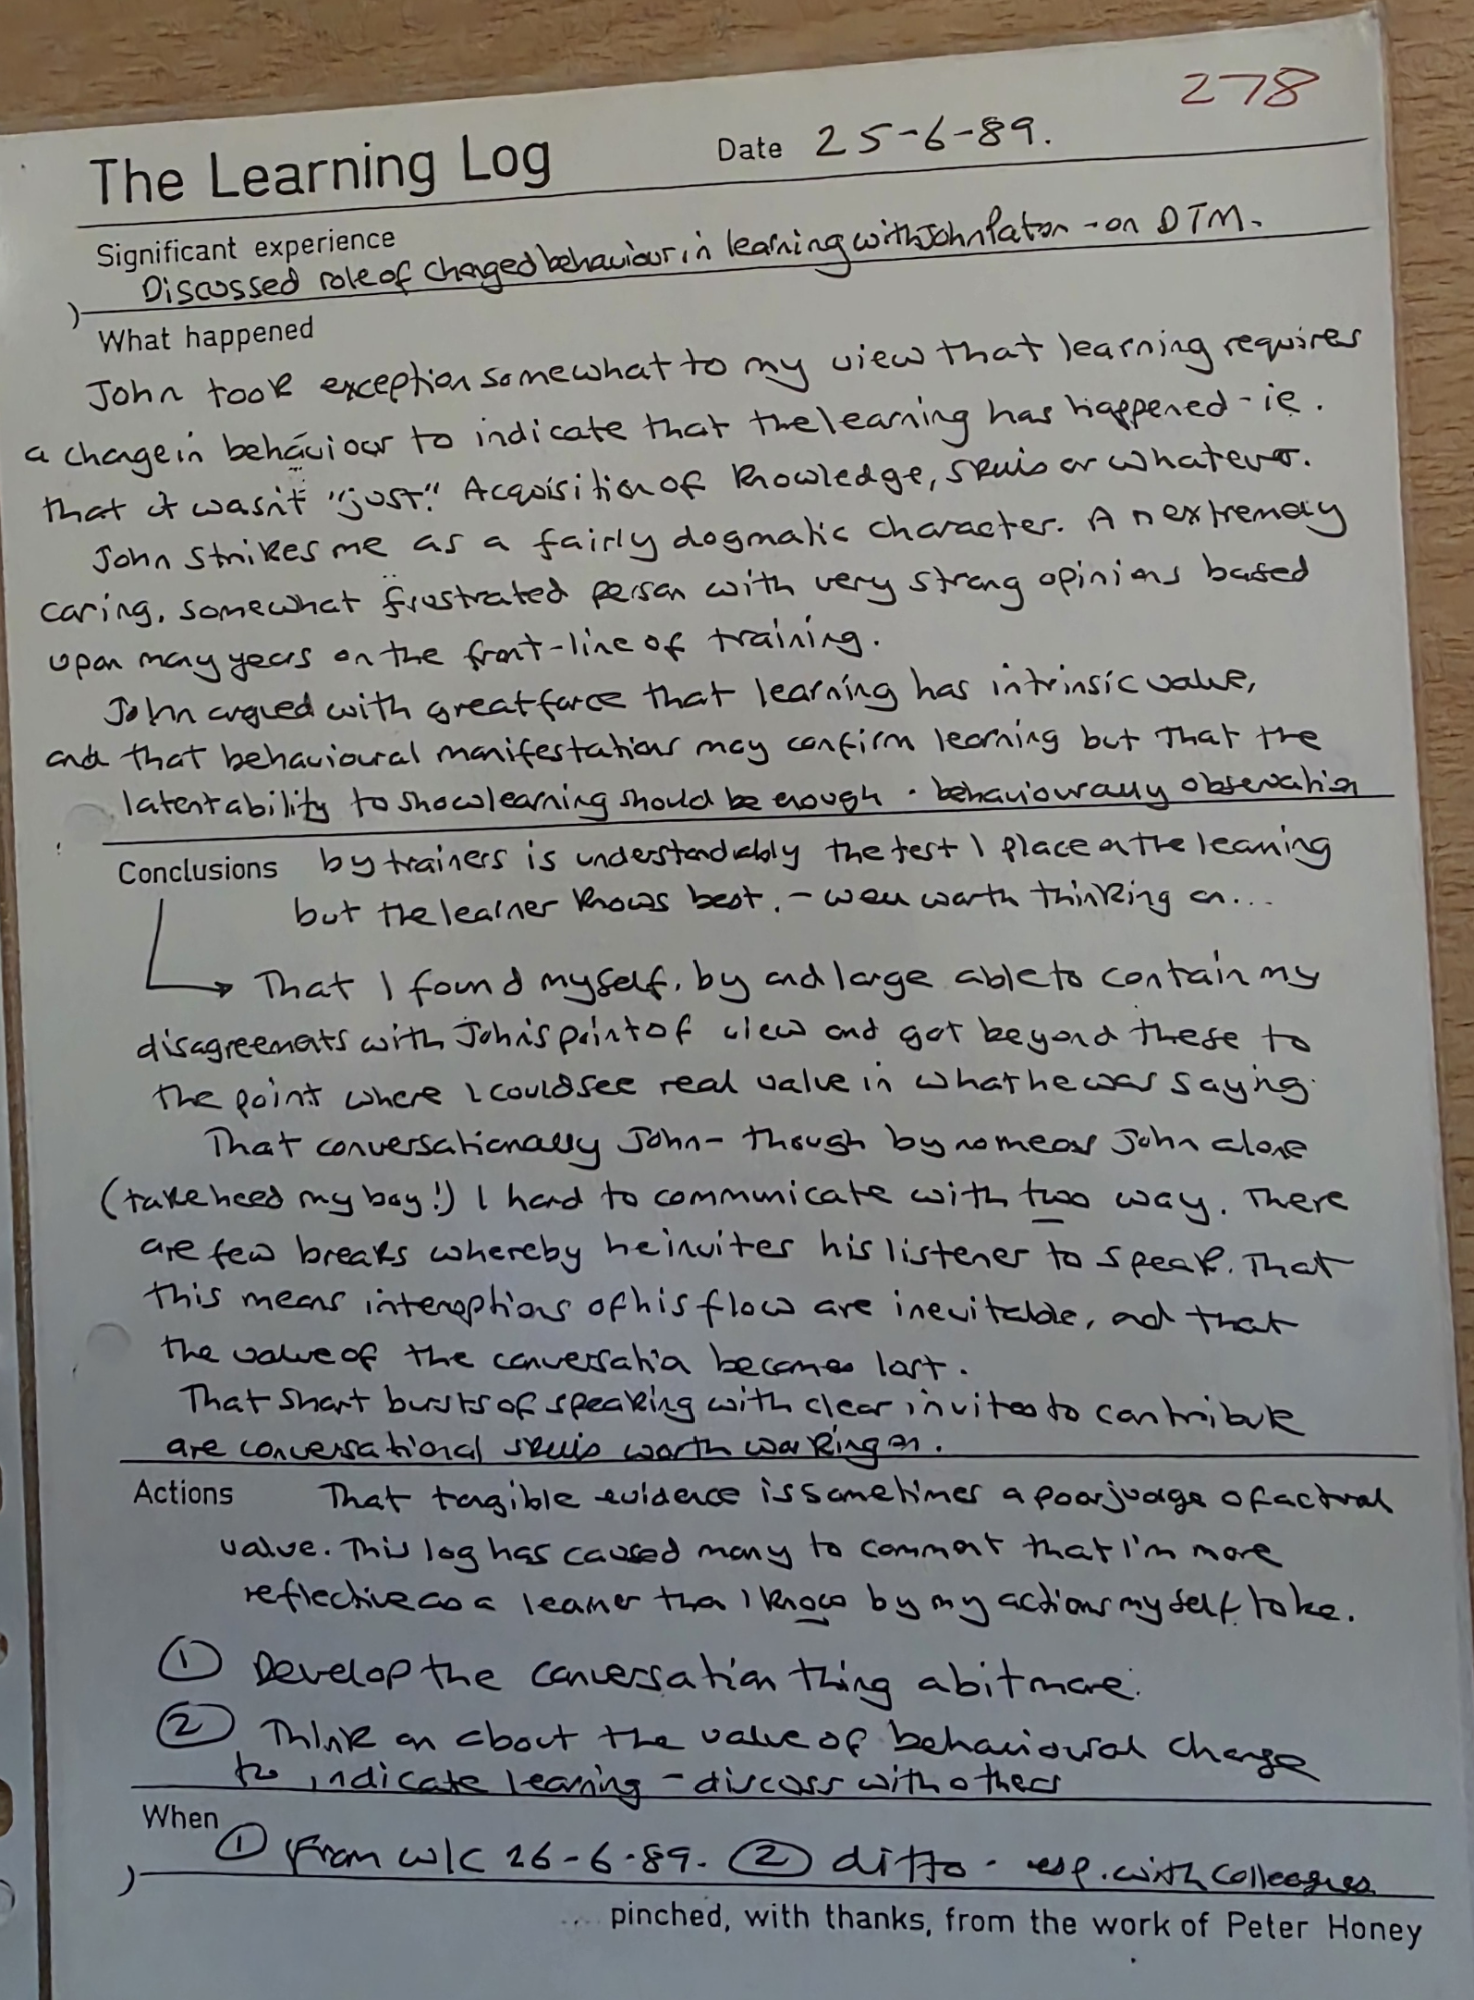 278
The Learning Log Date 25-6-89.
Significant experience
Discussed role of changed behaviour in learning with John Paton - on DTM.
What happened
John took exception somewhat to my view that learning requires
a change in behaviour to indicate that the learning has happened - ie.
that it wasn't "just" Acquisition of knowledge, skills or whatever.
John strikes me as a fairly dogmatic character. An extremely
caring, somewhat frustrated person with very strong opinions based
upon many years on the front-line of training.
John argued with great force that learning has intrinsic value,
and that behavioural manifestations may confirm learning but that the
latent ability to show learning should be enough. behaviourally observation
Conclusions by trainers is understandably the test I place on the learning
but the learner knows best. - well worth thinking on...
→ That I found myself, by and large able to contain my
disagreements with John's point of view and get beyond these to
the point where I could see real value in what he was saying.
That conversationally John - though by no means John alone
(take heed my boy!) I hard to communicate with two way. There
are few breaks whereby he invites his listener to speak. That
this means interruptions of his flow are inevitable, and that
the value of the conversation becomes lost.
That short bursts of speaking with clear invites to contribute
are conversational skills worth working on.
Actions That tangible evidence is sometimes a poor judge of actual
value. This log has caused many to comment that I'm more
reflective as a learner than I know by my actions myself to be.
① Develop the conversation thing a bit more.
② Think on about the value of behavioural change
to indicate learning - discuss with others
When
① From w/c 26-6-89. ② ditto - esp. with colleagues
.... pinched, with thanks, from the work of Peter Honey